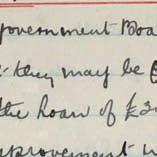 Government Boa
they may be
the loan of £3
mprovement